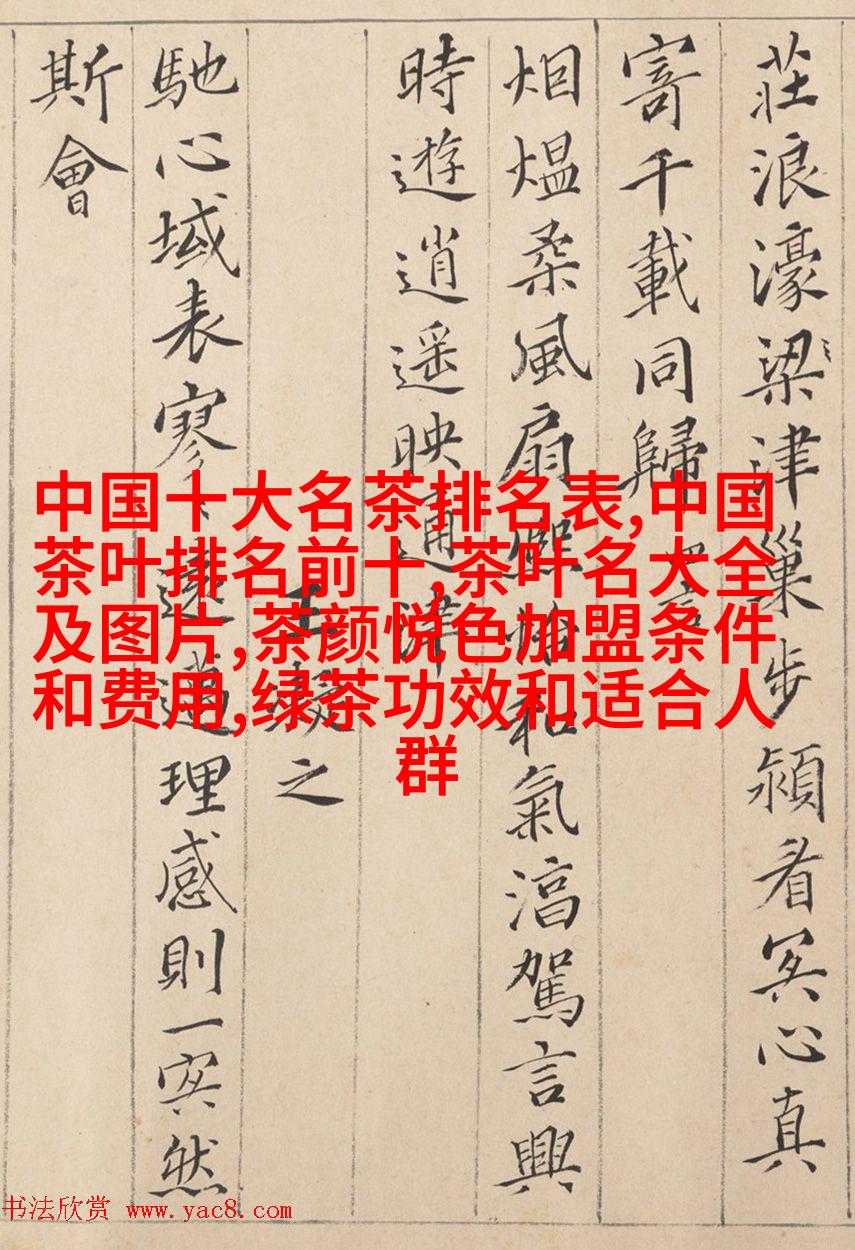 莊浪濠梁津巢步潁眉冥心真
寄千載同歸 四言
烟熅柔風扇熙怡和氣淳駕言興
時遊逍遥映通津
王凝之
馳心域表寥〻遠邁理感則一冥然
斯會
中国十大名茶排名表,中国
茶叶排名前十,茶叶名大全
及图片,茶颜悦色加盟条件
和费用,绿茶功效和适合人
群
书法欣赏 www.yac8.com